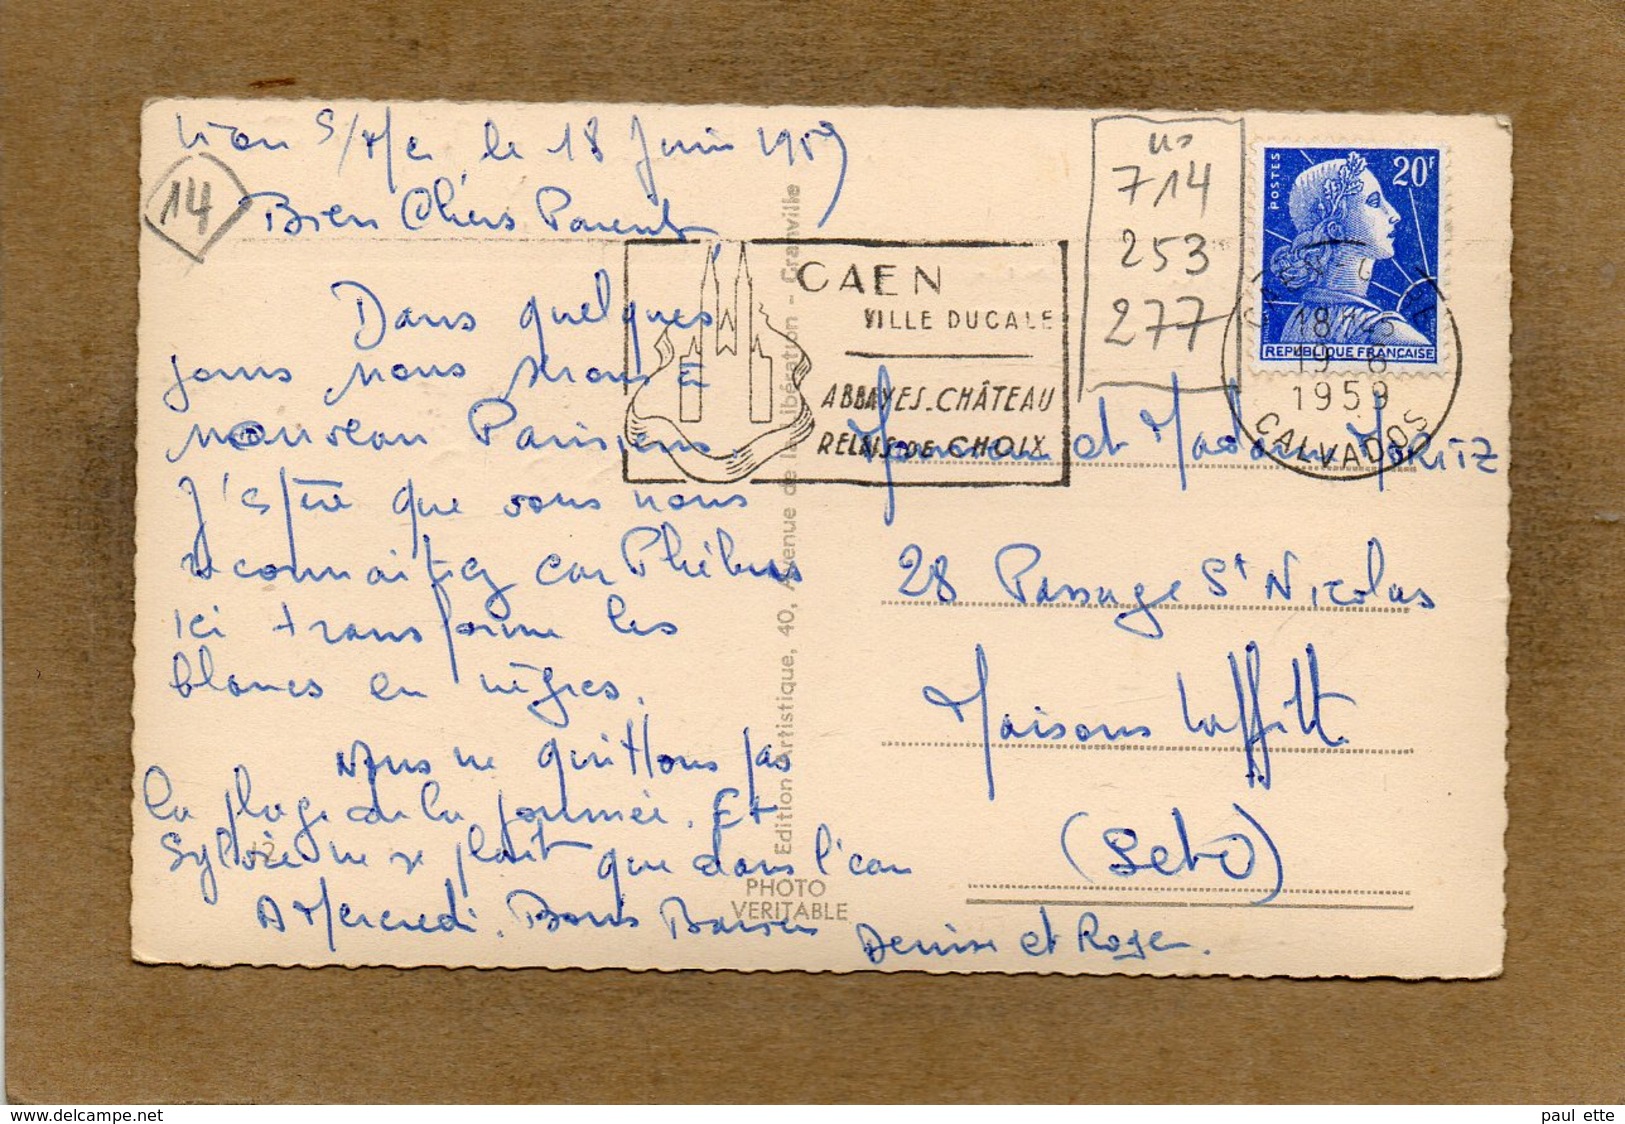 Lion S/Mer, le 18 Juin 1959
14
Bien Chers Parents,
Dans quelques
jours nous serons à
nouveau Parisiens.
J'espère que vous nous
reconnaitrez car Phébus
ici transforme les
blancs en nègres.
Nous ne quittons pas
la plage de la journée. Et
Sylvie ne se plait que dans l'eau
A Mercredi. Bons Baisers
Denise et Roger.
CAEN
VILLE DUCALE
ABBAYES-CHÂTEAU
RELAIS DE CHOIX
Edition Artistique, 40, Avenue de la Libération - Granville
PHOTO
VERITABLE
714
253
277
POSTES
20F
REPUBLIQUE FRANÇAISE
18H45
19-6
1959
CALVADOS
Monsieur et Madame MORITZ
28 Passage St Nicolas
Maisons Laffitte
(Set O)
www.delcampe.net
paul ette